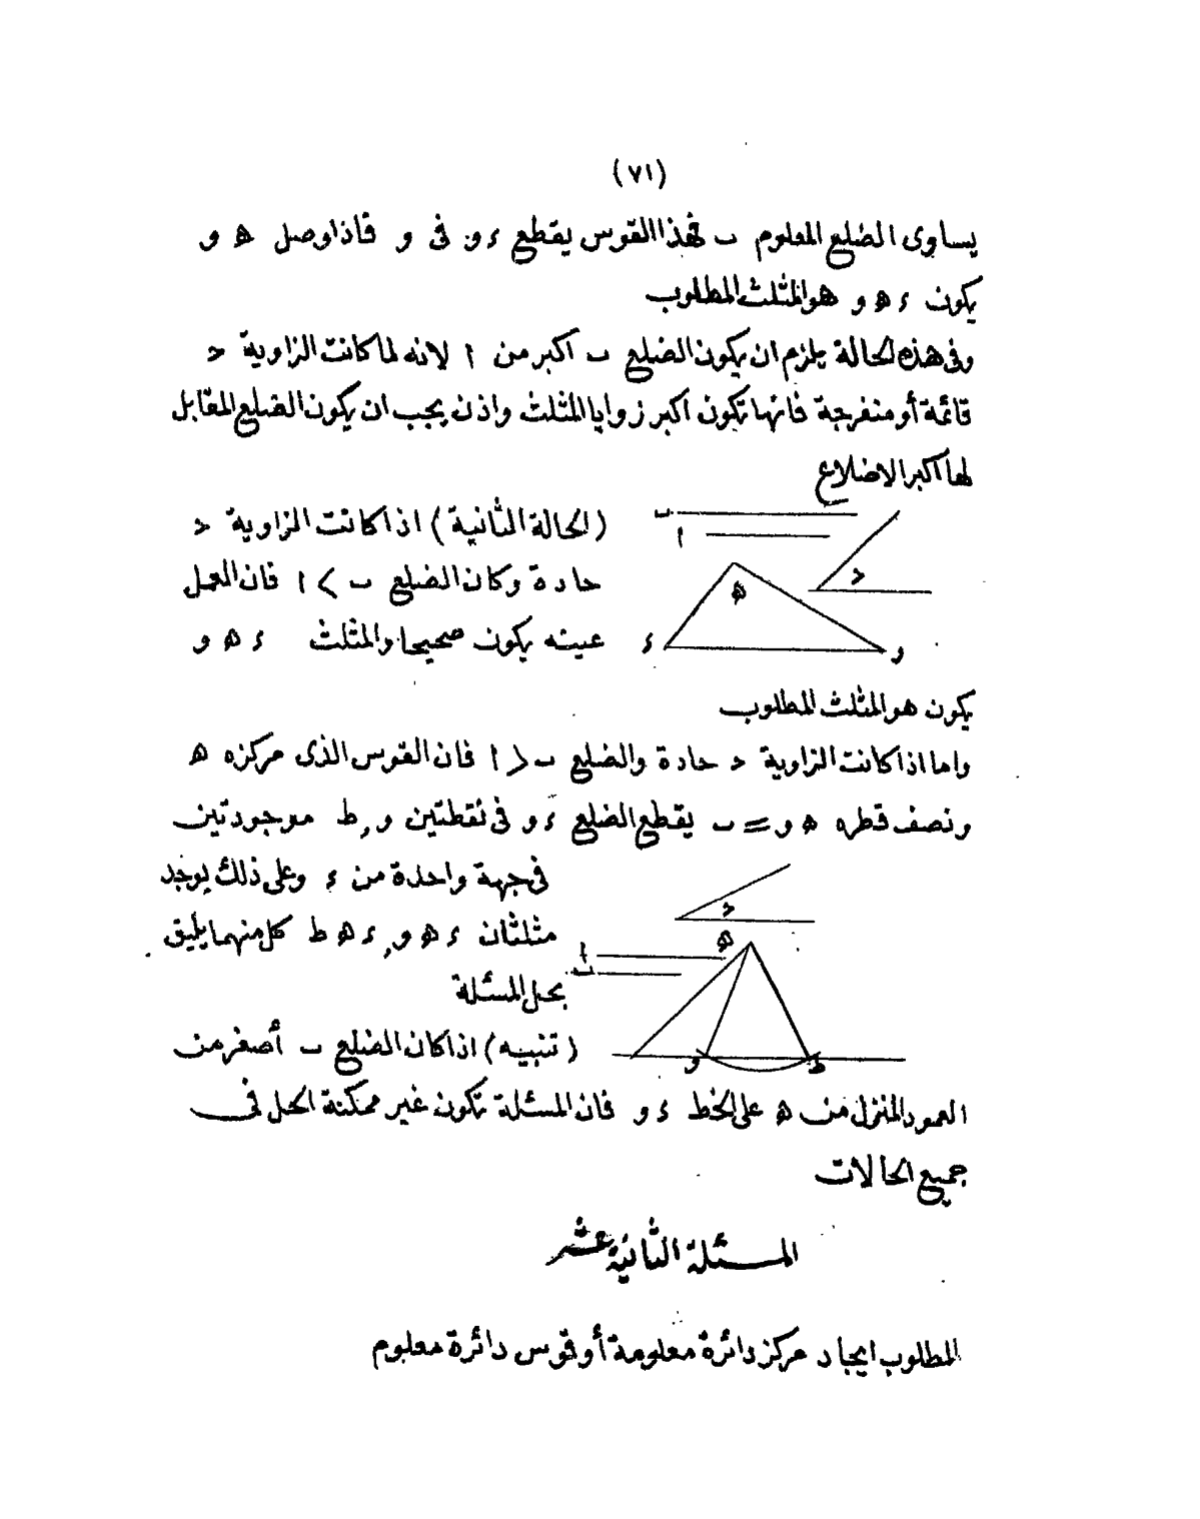 (٧١)
يساوى الضلع المعلوم ب فهذا القوس يقطع ء و فى و فاذا وصل ه و
يكون ء ه و هو المثلث المطلوب
وفى هذه الحالة يلزم ان يكون الضلع ب اكبر من ا لانه لما كانت الزاوية ح
قائمة أو منفرجة فانها تكون اكبر زوايا المثلث واذن يجب ان يكون الضلع المقابل
لها اكبر الاضلاع
(الحالة الثانية) اذا كانت الزاوية ح
حادة وكان الضلع ب > ا فان العمل
عينه يكون صحيحا والمثلث ء ه و
ب
ا
ح
ه
ء
و
يكون هو المثلث المطلوب
واما اذا كانت الزاوية ح حادة والضلع ب < ا فان القوس الذى مركزه ه
ونصف قطره ه و = ب يقطع الضلع ء و فى نقطتين و , ط موجودتين
فى جهة واحدة من ء وعلى ذلك يوجد
مثلثان ء ه و , ء ه ط كل منهما يليق
بحل المسئلة
ح
ه
ا
ب
و
ط
(تنبيه) اذا كان الضلع ب أصغر من
العمود المنزل من ه على الخط ء و فان المسئلة تكون غير ممكنة الحل فى
جميع الحالات
المسئلة الثانية عشر
المطلوب ايجاد مركز دائرة معلومة أو قوس دائرة معلوم